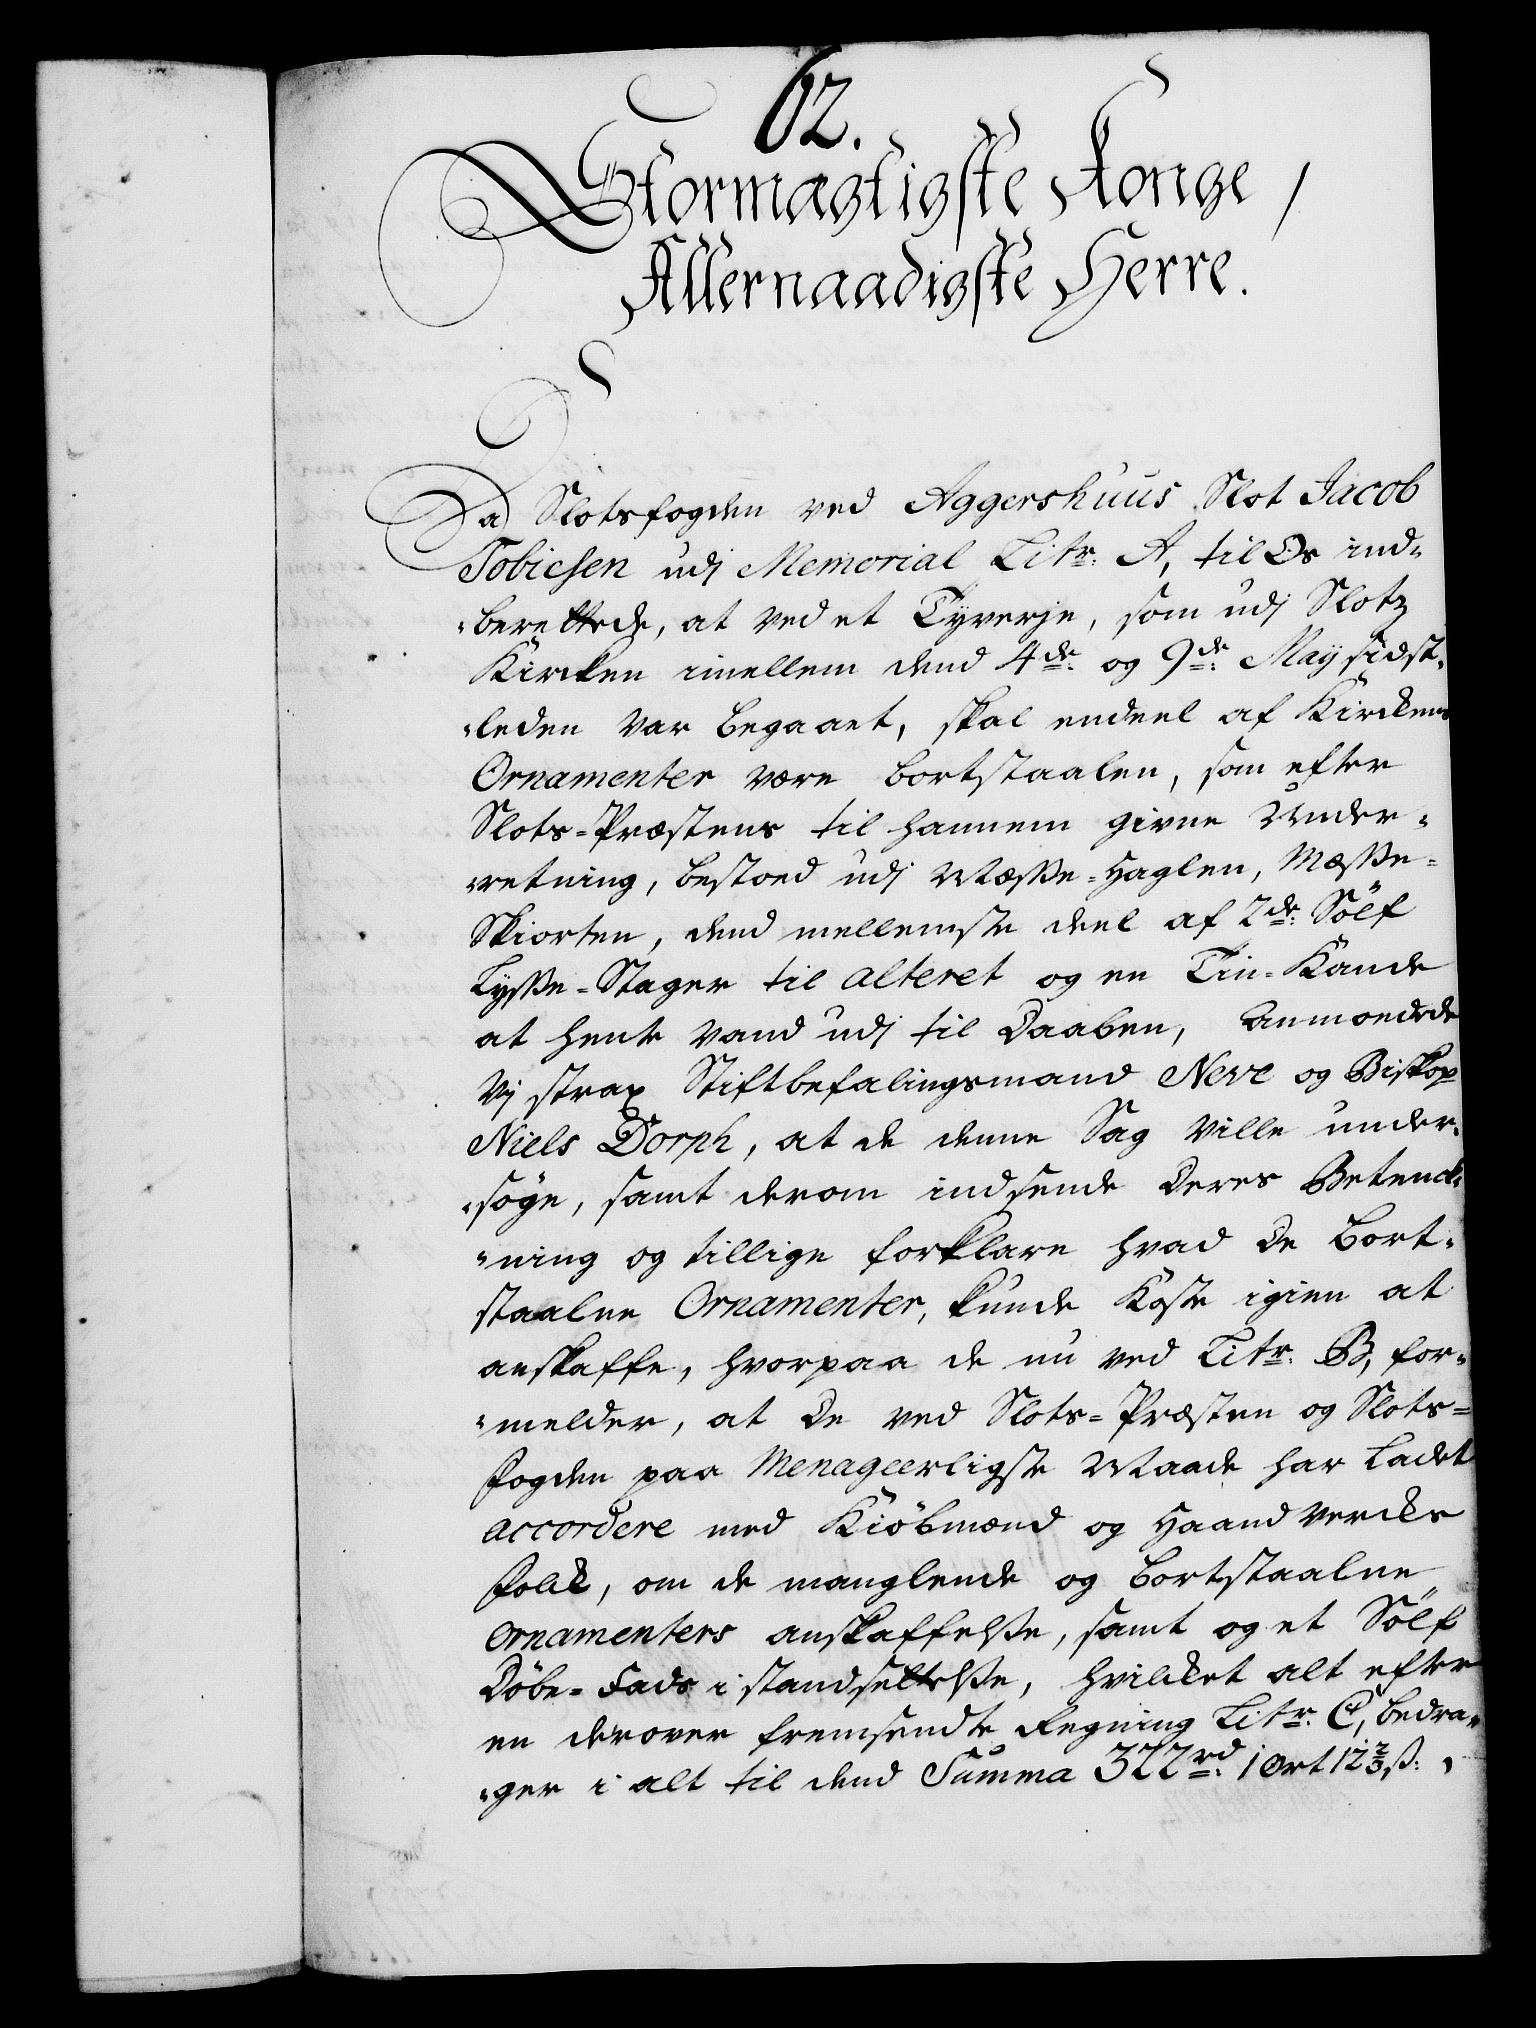 62.
Stormagtigste Konge /
Allernaadigste Herre.
Da Slotsfogden ved Aggershuus Slot Jacob
Tobiesen udj Memorial Litr: A, til Os ind-
-berettede, at ved et Tyverje, som udj Slotz
Kircken imellem dend 4de: og 9de: Maij sidst-
-leden var begaaet, skal endeel af Kirckens
Ornamenter være bortstaalen, som efter
Slots-Præstens til hannem givne Under-
-retning, bestoed udj Mæsse-Haglen, Mæsse-
Skiorten, dend mellemste deel af 2de: Sölf
Lysse-Stager til alteret og en Tin-Kande
at hente vand udj til Daaben, anmoedede
Vj strax Stiftbefalingsmand Neve og Biskop
Niels Dorph, at de denne Sag ville under-
-söge, samt derom indsende Deres Betenck-
-ning og tillige forklare hvad De bort-
staalne Ornamenter, kunde koste igien at
anskaffe, hvorpaa de nu ved Litr: B, for-
-melder, at De ved Slots-Præsten og Slots-
fogden paa Menageerligste Maade har ladet
accordere med Kiöbmænd og Haandvercks
folck, om de manglende og bortstaalne
Ornamenters anskaffelsse, samt og et Sölf
Döbe-Fads istandsettelsse, hvilcket alt efter
en derover fremsendte Regning Litr: C, bedra-
-ger i alt til dend Summa 322rd: 1 Ort 12⅔ ß:,